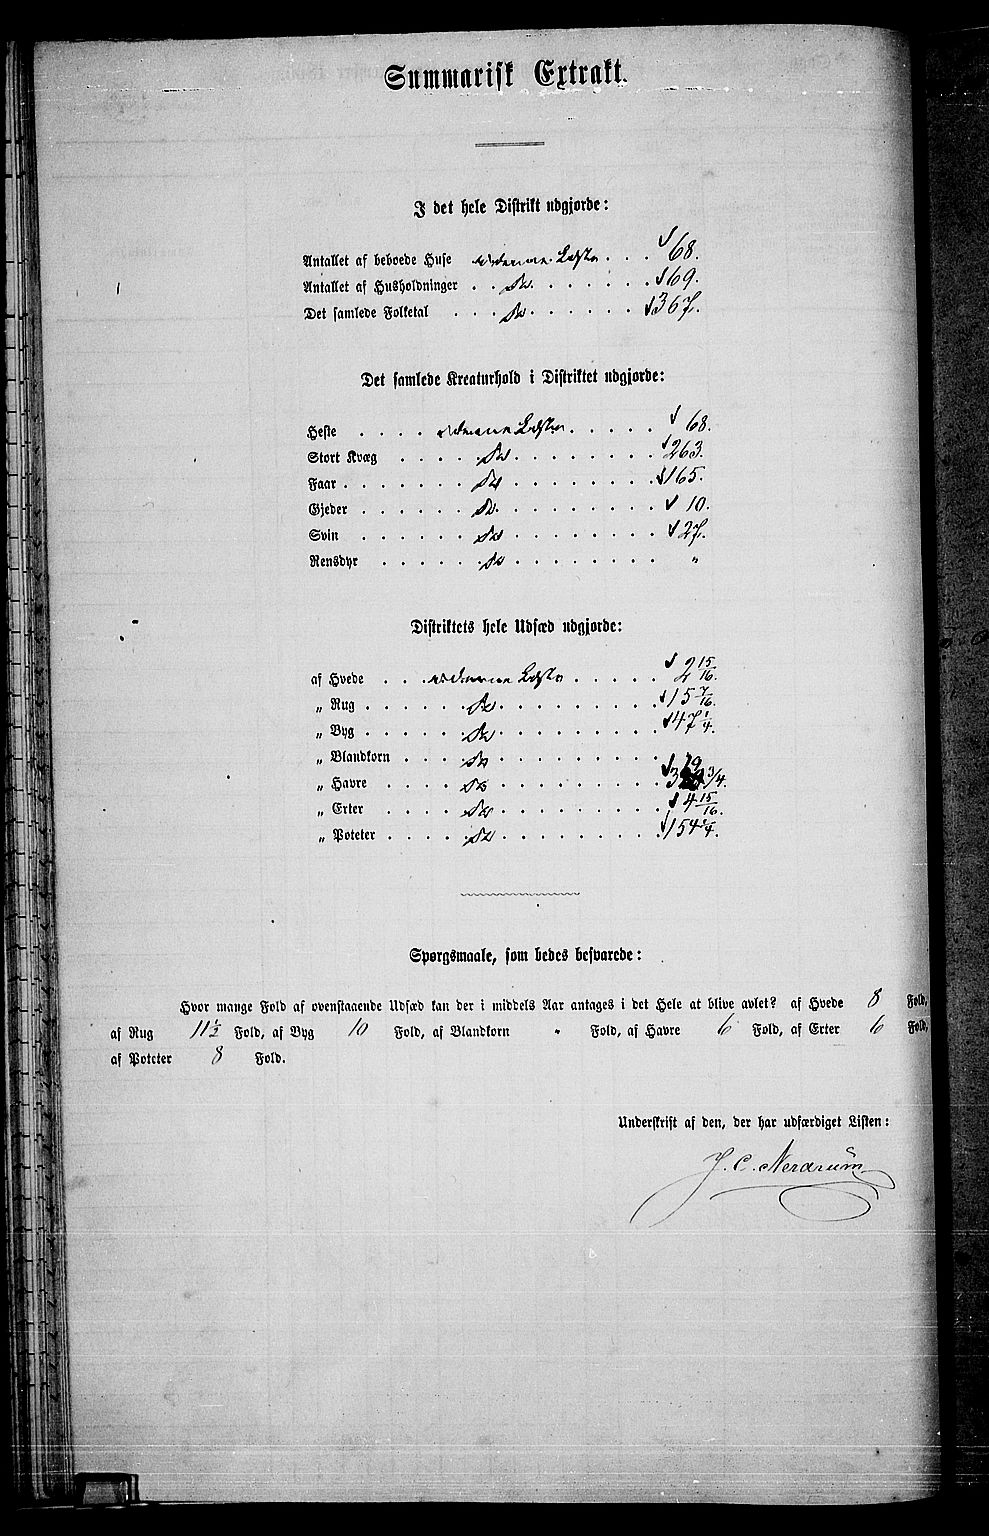 Summarisk Extrakt.
I det hele Distrikt udgjorde:
Antallet af beboede Huse . . . 68.
Antallet af Husholdninger . . Do. . . . . . . 69.
Det samlede Folketal . . . Do . . . . . . 367.
Det samlede Kreaturhold i Distriktet udgjorde:
Heste . . . . . . . . . 68.
Stort Kvæg . . . . Do . . . . . . . . 263.
Faar . . . . . . Do . . . . . . . . 165.
Gjeder . . . . . Do. . . . . . . . . 10.
Svin . . . . . Do . . . . . . . . 27.
Rensdyr . . . . Do . . . . . . . . "
Distriktets hele Udsæd udgjorde:
af Hvede . . . . . . . . 2 15/16.
„ Rug . . . . . Do . . . . . . . . 15 7/16.
„ Byg . . . . . Do . . . . . . . . 47 1/4.
„ Blandkorn . . . Do . . . . . . . .
„ Havre . . . . Do . . . . . . . . 3/4.
„ Erter . . . . Do . . . . . . . . 4 15/16.
„ Poteter . . . . Do . . . . . . . . 154
Spørgsmaale, som bedes besvarede:
Hvor mange Fold af ovenstaaende Udsæd kan der i middels Aar antages i det Hele at blive avlet? af Hvede 8 Fold,
af Rug 11½ Fold, af Byg 10 Fold, af Blandkorn " Fold, af Havre 6 Fold, af Erter 6 Fold,
af Poteter 8 Fold.
Underskrift af den, der har udfærdiget Listen:
J. C. Nerdrum